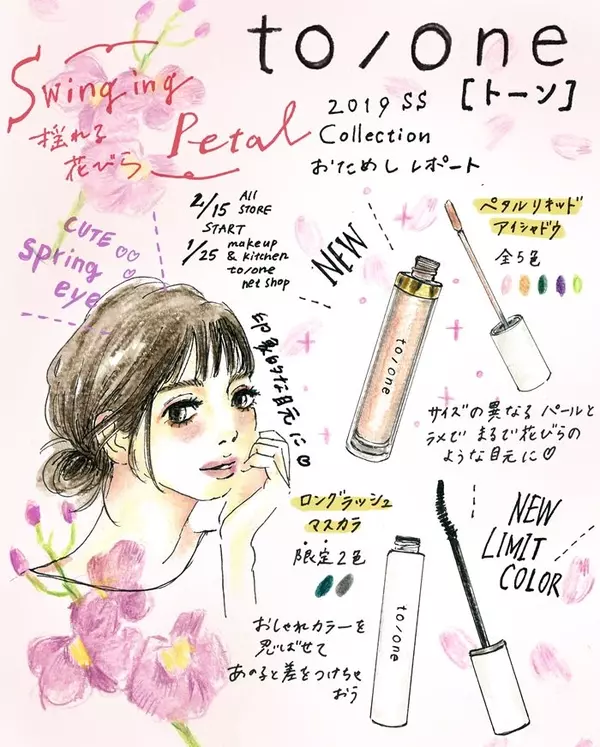 to/one
[トーン]
Swinging
Petal
揺れる
花びら
2019 SS
Collection
おためしレポート
2/15 All
STORE
START
1/25 makeup
& kitchen
to/one
net shop
CUTE♡♡♡
spring
eye
印象的な目元に♡
NEW
to/one
ペタルリキッド
アイシャドウ
全5色
サイズの異なるパールと
ラメで まるで花びらの
ような目元に♡
ロングラッシュ
マスカラ
限定2色
おしゃれカラーを
忍ばせて
あの子と差をつけちゃ
おう
to/one
NEW
LIMIT
COLOR